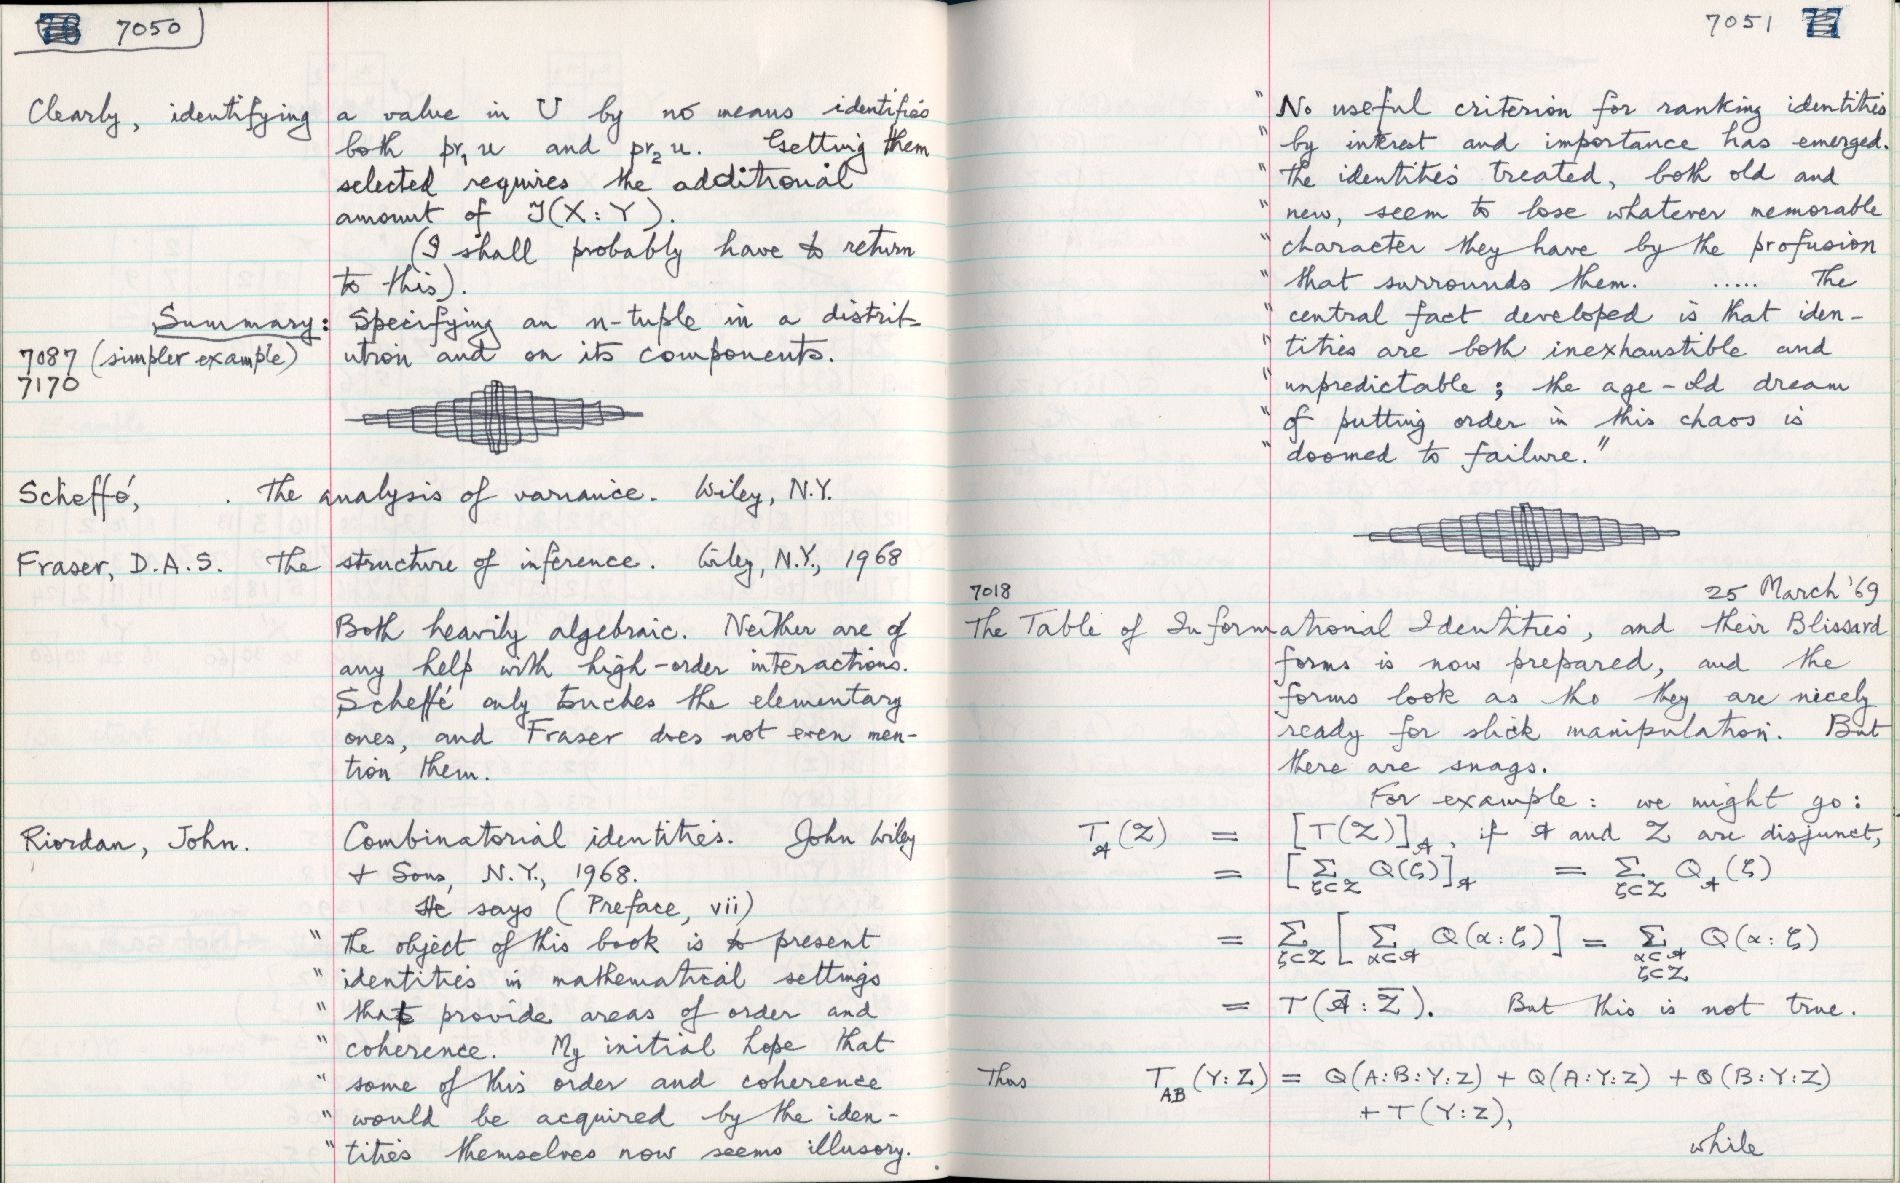 7050
Clearly, identifying a value in U by no means identifies
both pr₁ u and pr₂ u. Getting them
selected requires the additional
amount of T(X:Y).
(I shall probably have to return
to this).
Summary: Specifying an n-tuple in a distrib-
ution and on its components.
7087 (simpler example)
7170
Scheffé, . The analysis of variance. Wiley, N.Y.
Fraser, D.A.S. The structure of inference. Wiley, N.Y., 1968
Both heavily algebraic. Neither are of
any help with high-order interactions.
Scheffé only touches the elementary
ones, and Fraser does not even men-
tion them.
Riordan, John. Combinatorial identities. John Wiley
+ Sons, N.Y., 1968.
He says (Preface, vii)
" The object of this book is to present
" identities in mathematical settings
" that provide areas of order and
" coherence. My initial hope that
" some of this order and coherence
" would be acquired by the iden-
" tities themselves now seems illusory.
7051 77
" No useful criterion for ranking identities
" by interest and importance has emerged.
" The identities treated, both old and
" new, seem to lose whatever memorable
" character they have by the profusion
" that surrounds them. ..... The
" central fact developed is that iden-
" tities are both inexhaustible and
" unpredictable; the age-old dream
" of putting order in this chaos is
" doomed to failure."
7018 25 March '69
The Table of Informational Identities, and their Blissard
forms is now prepared, and the
forms look as tho they are nicely
ready for slick manipulation. But
there are snags.
For example: we might go:
T_𝒜(Z) = [T(Z)]_𝒜, if 𝒜 and Z are disjunct,
= [Σ_{ζ⊂Z} Q(ζ)]_𝒜 = Σ_{ζ⊂Z} Q_𝒜(ζ)
= Σ_{ζ⊂Z} [Σ_{α⊂𝒜} Q(α:ζ)] = Σ_{α⊂𝒜 ζ⊂Z} Q(α:ζ)
= T(𝒜̄:Z̄). But this is not true.
Thus T_AB(Y:Z) = Q(A:B:Y:Z) + Q(A:Y:Z) + Q(B:Y:Z)
+ T(Y:Z),
while